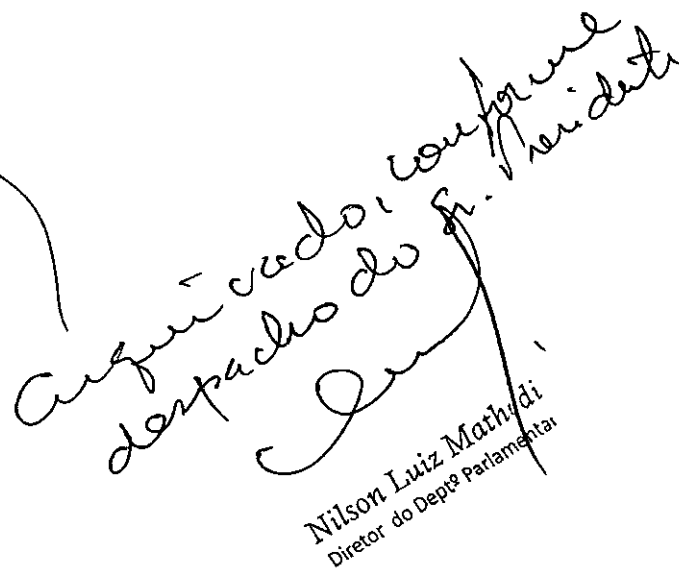 Arquivado, conforme
despacho do Sr. Presidente
Nilson Luiz Mathedi
Diretor do Deptº Parlamentar